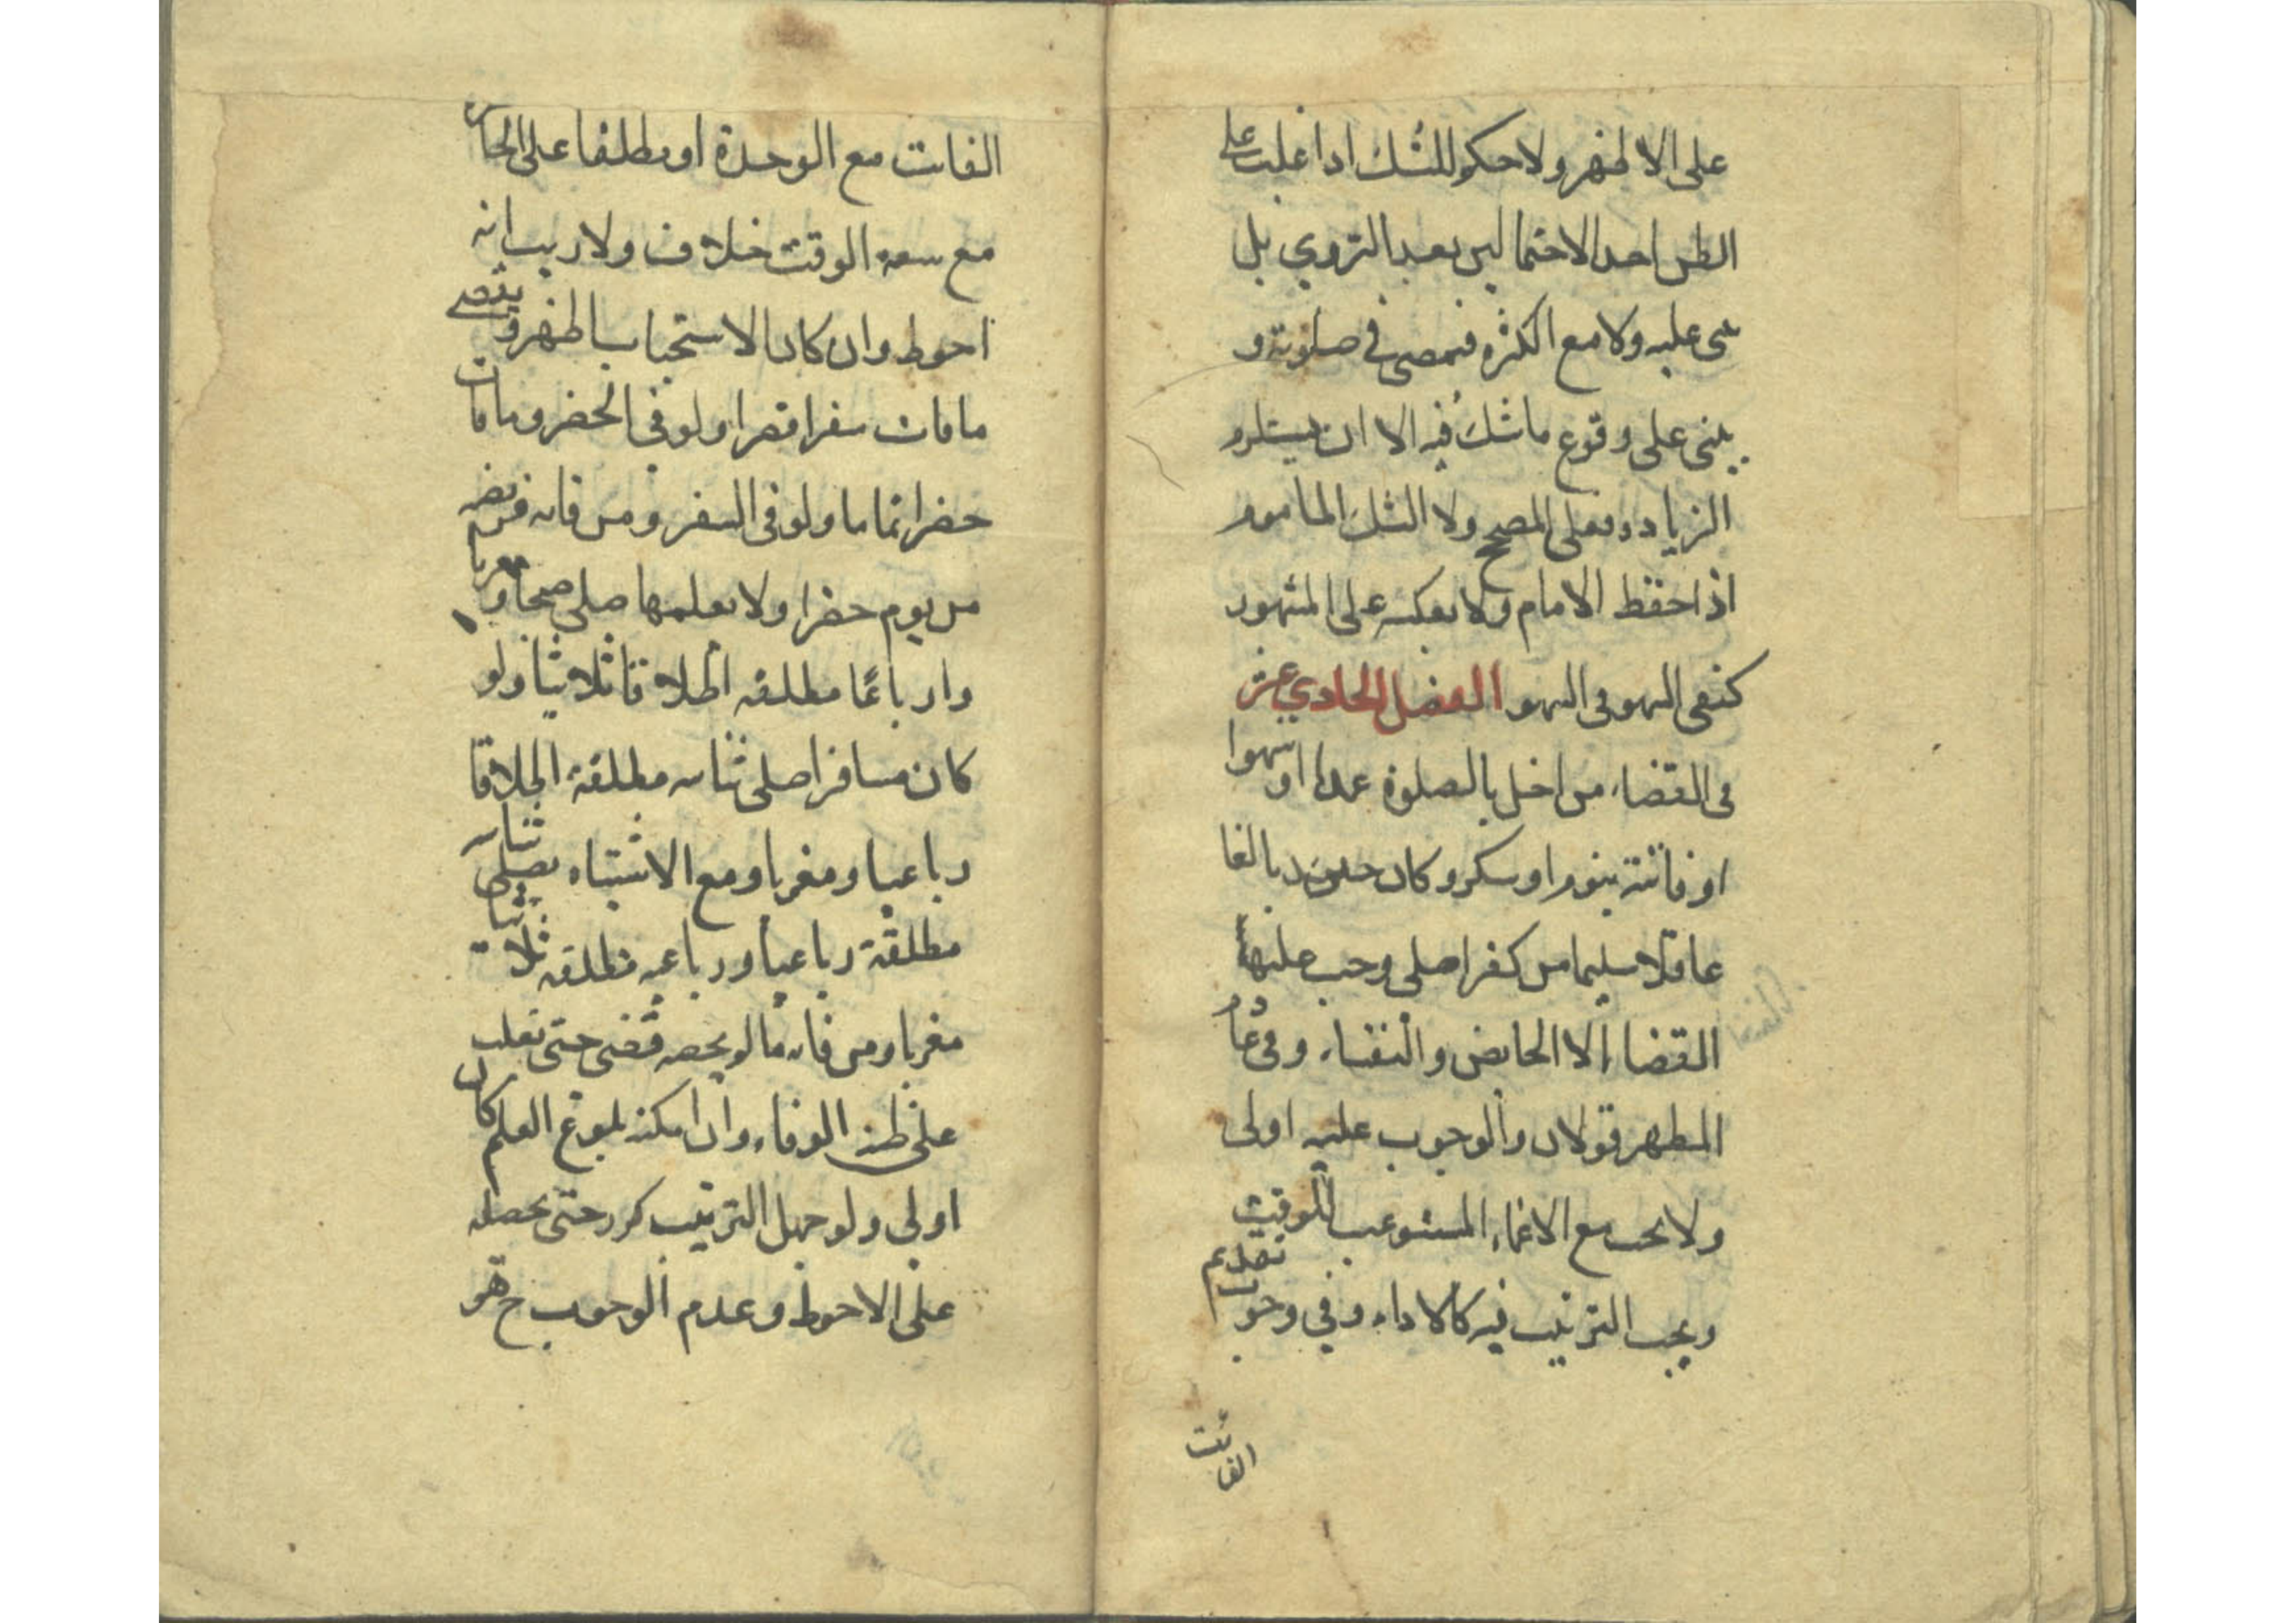 على الاظهر ولا حكم للشك اذا غلب على
الظن احد الاحتمالين بعد التروي بل
يبنى عليه ولا مع الكثره فيمضى في صلوته و
يبنى على وقوع ما شك فيه الا ان يستلزم
الزياده فعلى المصحح ولا الشك الماموم
اذا حفظ الامام ولا بعكسه على المشهور
كنفى السهو فى السهو الفصل الحادي عشر
فى القضاء من اخل بالصلوة عمدا او سهوا
او فاتته بنوم او سكر وكان بالغا
عاقلا سليما من كفر اصلى وجب عليه
القضاء الا الحايض والنفساء وفى عادم
المطهر قولان والوجوب عليه اولى
ولا يجب مع الاغماء المستوعب للوقت
ويجب الترتيب فيه كالاداء وفي وجوب تقديم
الفائت
الفائت مع الوحدة او مطلقا على الحاضرة
مع سعة الوقت خلاف ولا ريب انه
احوط وان كان الاستحباب اظهر ويقضي
ما فات سفرا قصرا ولو فى الحضر وما فات
حضرا تماما ولو فى السفر ومن فاته فريضه
من يوم حضرا ولا يعلمها صلى صبحا ومغربا
واربعا مطلقه اطلاقا ثلاثيا ولو
كان مسافرا صلى ثنائيه مطلقة اطلاقا
رباعيا ومغربا ومع الاشتباه يصلى ثنائيه
مطلقة رباعيا ورباعيه مطلقه ثلاثيا
مغربا ومن فاته ما لم يحصه قضى حتى يغلب
على ظنه الوفاء وان امكنه بلوغ العلم كان
اولى ولو جهل الترتيب كرر حتى يحصله
على الاحوط وعدم الوجوب ح هو